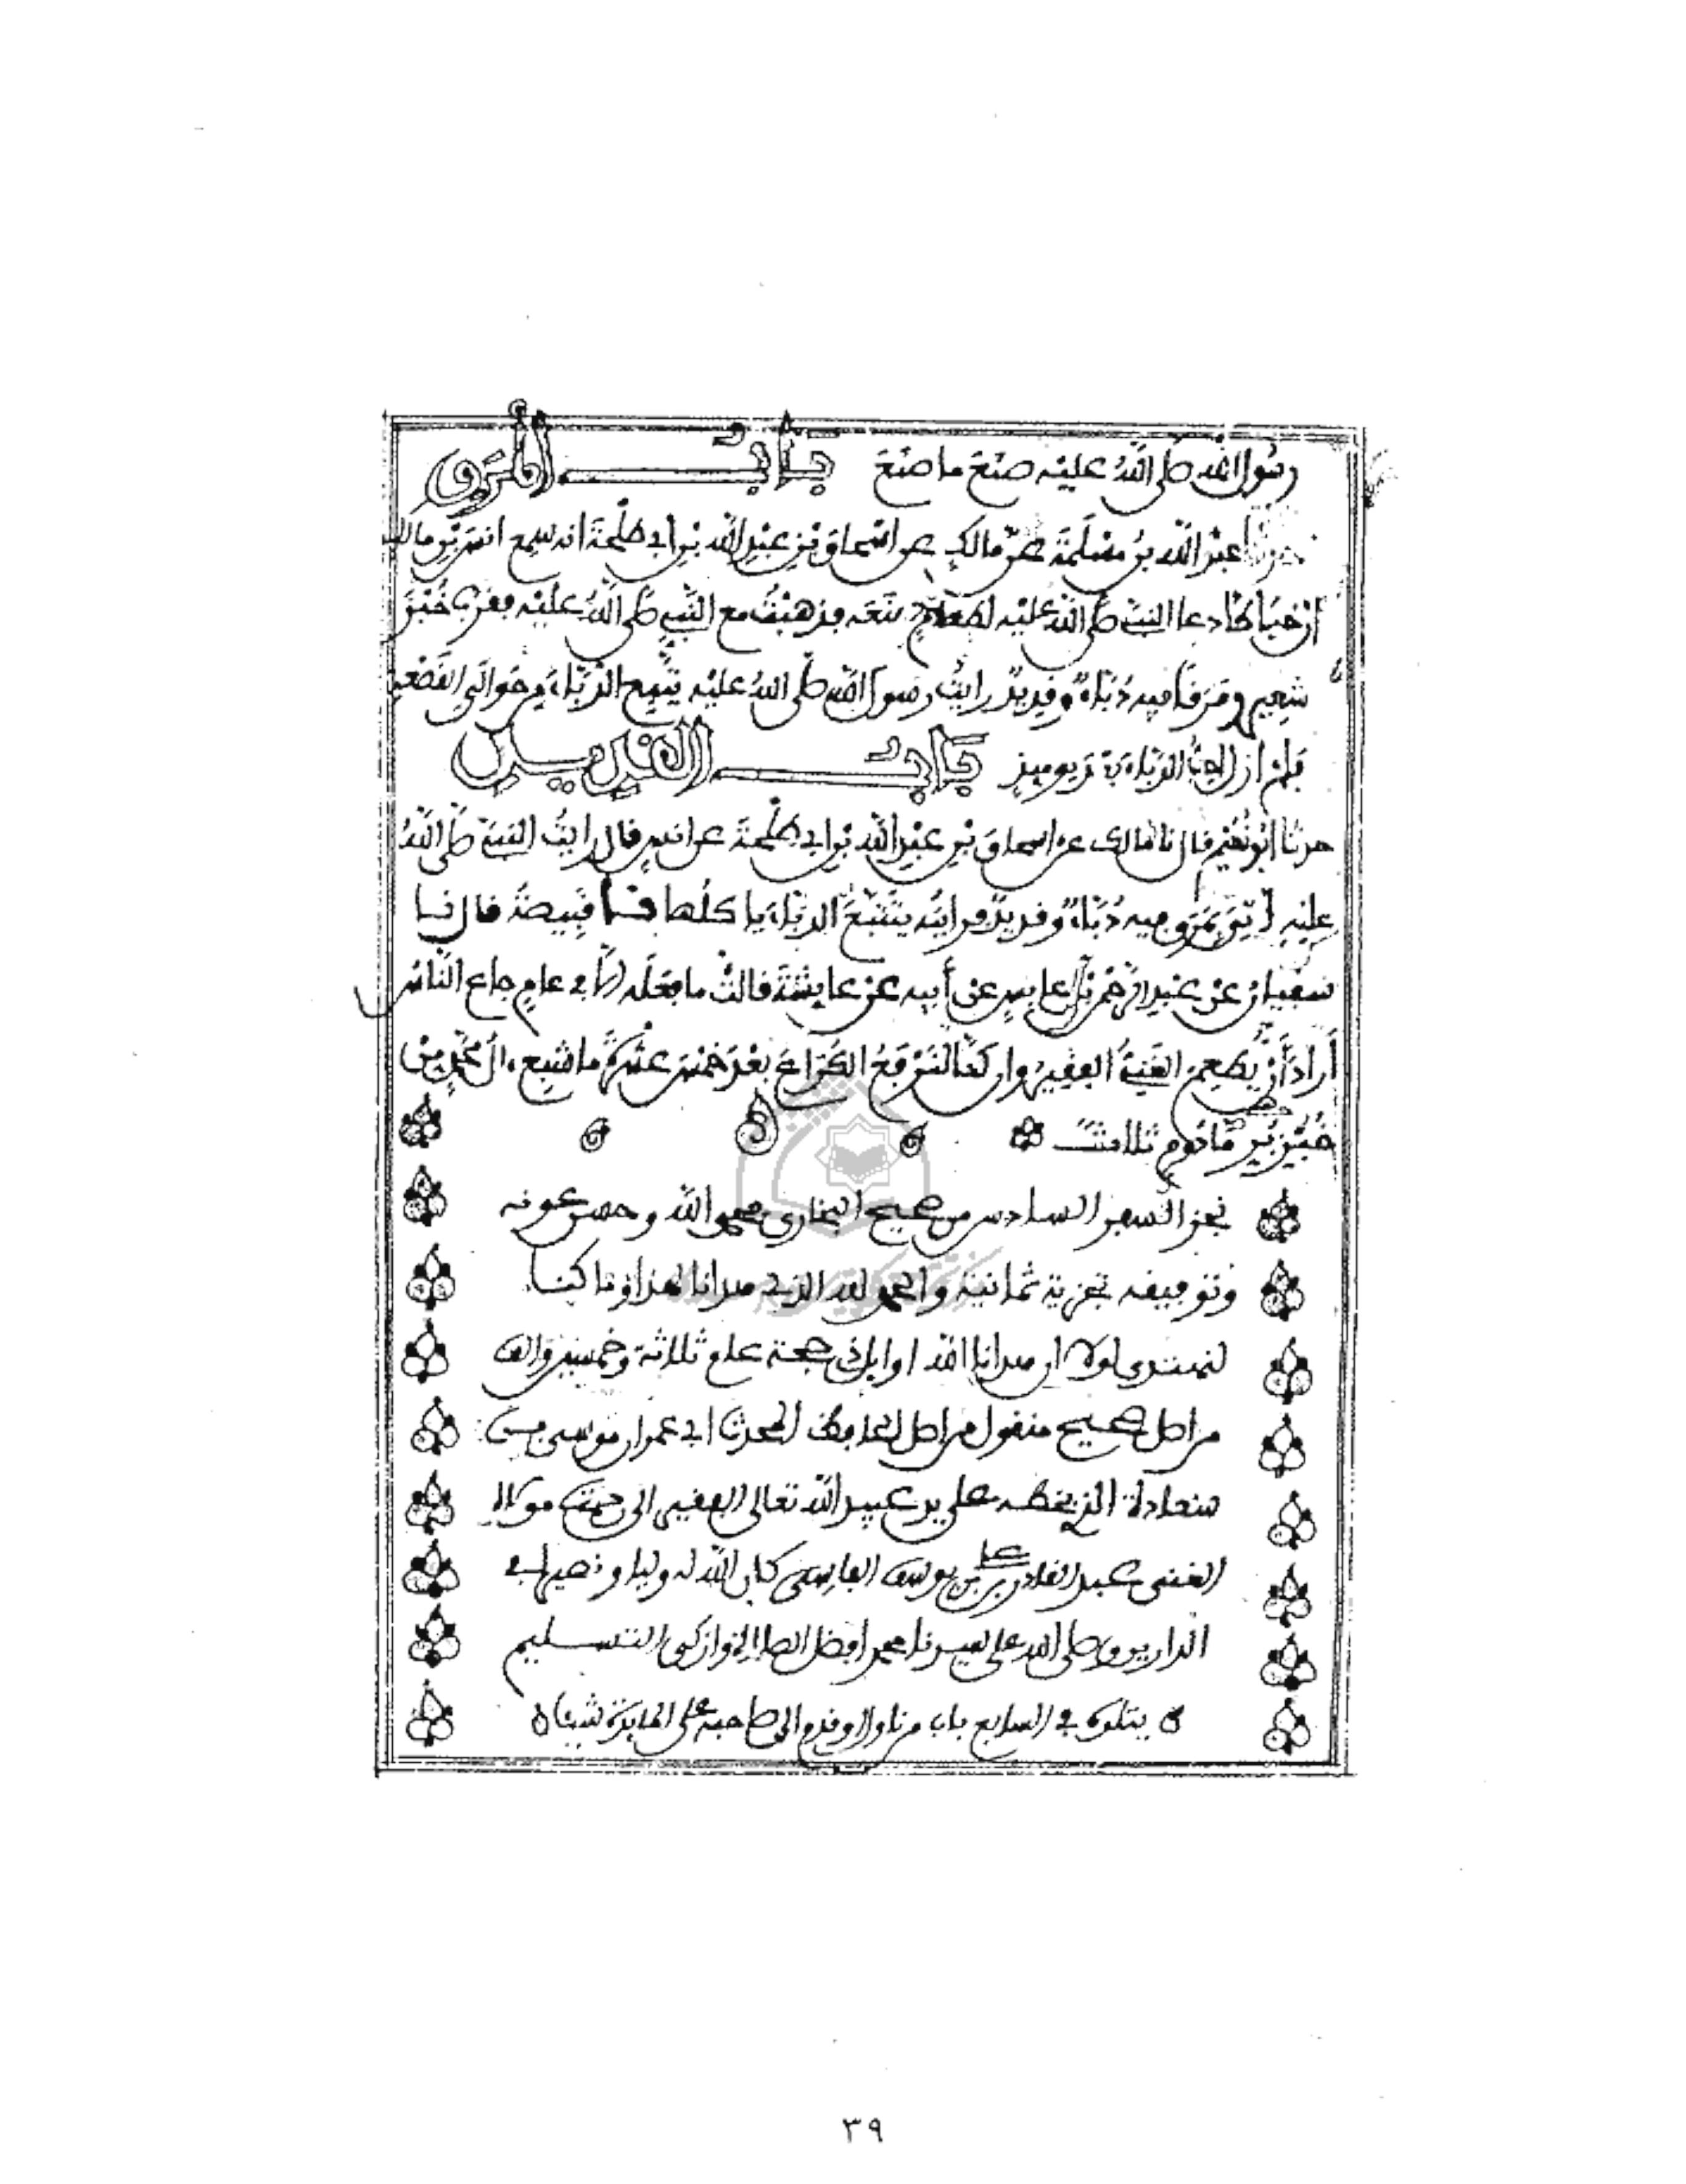 رسول الله صلى الله عليه صنع ما صنع باب المرق
حدثنا عبد الله بن مسلمة عن مالك عن اسحاق بن عبد الله بن ابي طلحة انه سمع انس بن مالك
ان خياطا دعا النبي صلى الله عليه لطعام صنعه فذهبت مع النبي صلى الله عليه فقرب خبز
شعير ومرقا فيه دباء وقديد رايت رسول الله صلى الله عليه يتتبع الدباء من حوالي القصعة
فلم ازل احب الدباء بعد يوميذ باب القديد
حدثنا ابو نعيم قال نا مالك عن اسحاق بن عبد الله بن ابي طلحة عن انس قال رايت النبي صلى الله
عليه اتي بمرق فيه دباء وقديد فرايته يتتبع الدباء ياكلها نا قبيصة قال نا
سفيان عن عبد الرحمن بن عابس عن أبيه عن عايشة قالت ما فعله الا في عام جاع الناس
أراد أن يطعم الغني الفقير وان كنا لنرفع الكراع بعد خمس عشرة ما شبع ال محمد من
خبز بر مادوم ثلاثا
نجز السفر السادس من صحيح البخاري بحمد الله وحسن عونه
وتوفيقه تجزية ثمانية والحمد لله الذي هدانا لهذا وما كنا
لنهتدي لولا ان هدانا الله اوايل حجة عام ثلاثة وخمسين والف
من اصل صحيح منقول من اصل الحافظ المحدث ابي عمران موسى بن
سعادة الذي بخطه على يد عبيد الله تعالى الفقير الى رحمت مولاه
الغني عبد القادر بن علي بن يوسف الفاسي كان الله له وليا ونصيرا في
الدارين وصلى الله على سيدنا محمد افضل الصلاة وازكى التسليم
يتلوه في السابع باب من ناول او قدم الى صاحبه على المايدة شيئا
٣٩